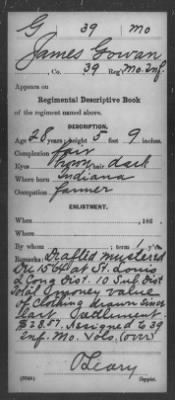 G 39 Mo
James Gowan
, Co. 39 Reg't Mo. Inf.
Appears on
Regimental Descriptive Book
of the regiment named above.
DESCRIPTION.
Age 28 years; height 5 feet 9 inches.
Complexion fair
Eyes ; hair dark
Where born Indiana
Occupation farmer
ENLISTMENT.
When , 186 .
Where
By whom ; term 1 y'rs.
Remarks: Drafted mustered
Dec 15 64 at St. Louis
2 Cong Dist. 10 Sub Dist
Total money value
of clothing drawn since
last settlement
$28.57. Assigned to 39
Inf. Mo. Vols. (over
O'Leary
Copyist.